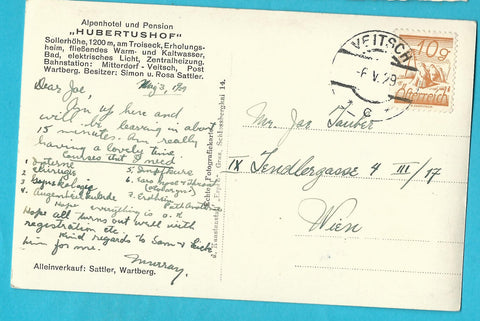 Alpenhotel und Pension
„HUBERTUSHOF"
Sollerhöhe, 1200 m, am Troiseck, Erholungs-
heim, fließendes Warm- und Kaltwasser,
Bad, elektrisches Licht, Zentralheizung.
Bahnstation: Mitterdorf-Veitsch, Post
Wartberg. Besitzer: Simon u. Rosa Sattler.
May 3, 1929
Dear Joe,
Am up here and
will be leaving in about
15 minutes. Am really
having a lovely time
Courses that I need
1 Interne
2 chirurgie
3 Gynakologie
4 Augenheilkunde
5.
6. Ears nose + Throat
7.
Hope everything is o.k.
Hope all turns out well with
registration etc.
Kind regards to Sam &
him for me.
Murray.
Alleinverkauf: Sattler, Wartberg.
Echte Fotografiekarte
Schlossbergbai 14.
VEITSCH
-6.V.29
c
10g
Österreich
Mr. Joe Tauber
IX Sendlergasse 4 III/17
Wien